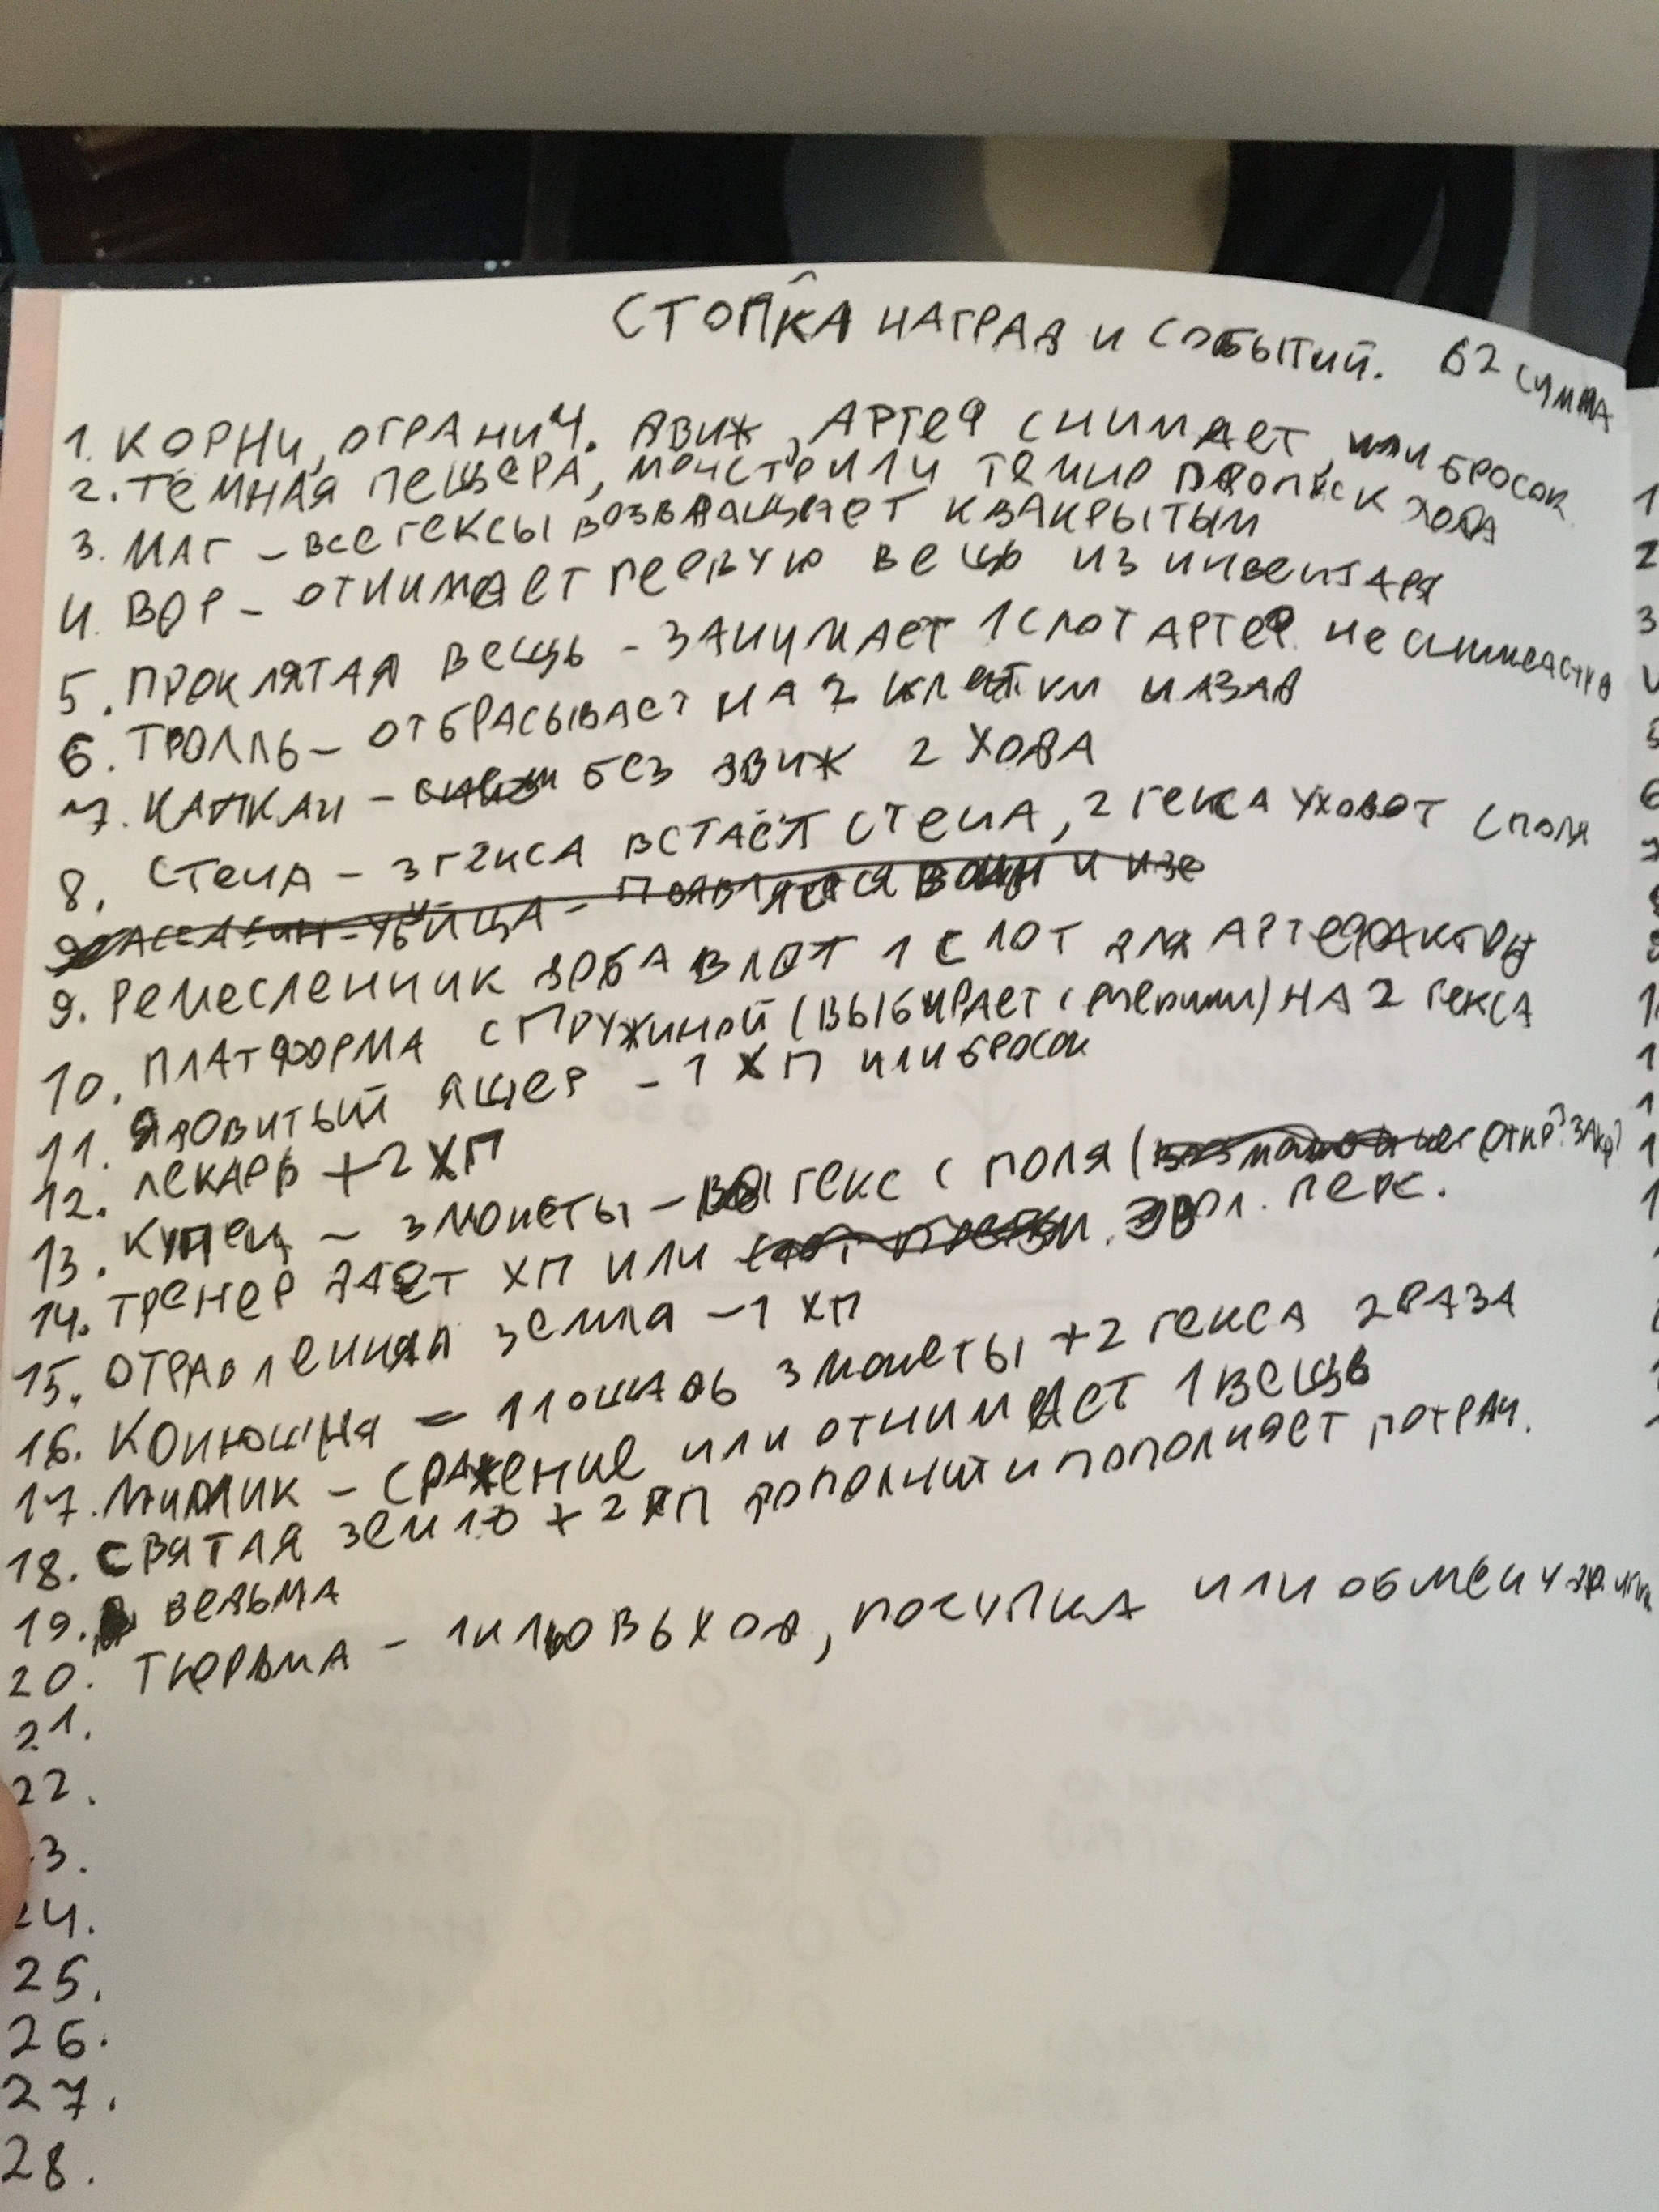 СТОПКА НАГРАД И СОБЫТИЙ. 62 СУММА
1. КОРНИ, ОГРАНИЧ. ДВИЖ, АРТЕФ СНИМАЕТ ИЛИ БРОСОК
2. ТЁМНАЯ ПЕЩЕРА, МОНСТР ИЛИ ПРОПУСК ХОДА
3. МАГ - ВСЕ ГЕКСЫ ВОЗВРАЩАЕТ К ЗАКРЫТЫМ
4. ВОР - ОТНИМАЕТ ПЕРВУЮ ВЕЩЬ ИЗ ИНВЕНТАРЯ
5. ПРОКЛЯТАЯ ВЕЩЬ - ЗАНИМАЕТ 1 СЛОТ АРТЕФ. НЕ
6. ТРОЛЛЬ - ОТБРАСЫВАЕТ НА 2 КЛЕТКИ НАЗАД
7. КАПКАН - БЕЗ ДВИЖ 2 ХОДА
8. СТЕНА - 3 ГЕКСА ВСТАЁТ СТЕНА, 2 ГЕКСА УХОДЯТ С ПОЛЯ
АССАСИН - УБИЙЦА - ПОЯВЛЯЕТСЯ И
9. РЕМЕСЛЕННИК 1 СЛОТ ДЛЯ
10. ПЛАТФОРМА С ПРУЖИНОЙ (ВЫБИРАЕТ НА 2 ГЕКСА
11. ЯДОВИТЫЙ ЯЩЕР - 1 ХП ИЛИ БРОСОК
12. ЛЕКАРЬ +2 ХП
13. КУПЕЦ - 3 МОНЕТЫ - ГЕКС С ПОЛЯ ( ОТКР? ЗАКР?
14. ТРЕНЕР ДАЕТ ХП ИЛИ ЭВОЛ. ПЕРС.
15. ОТРАВЛЕННАЯ ЗЕМЛЯ - 1 ХП
16. КОНЮШНЯ - ЛОШАДЬ 3 МОНЕТЫ +2 ГЕКСА 2 РАЗА
17. МИМИК - СРАЖЕНИЕ ИЛИ ОТНИМАЕТ 1 ВЕЩЬ
18. СВЯТАЯ + 2 ХП И ПОПОЛНЯЕТ ПОТРАЧ.
19. ВЕДЬМА
20. ТЮРЬМА - 1 КЛЮ ВЫХОД, ПОКУПКА ИЛИ ОБМЕН У
21.
22.
3.
24.
25.
26.
27.
28.